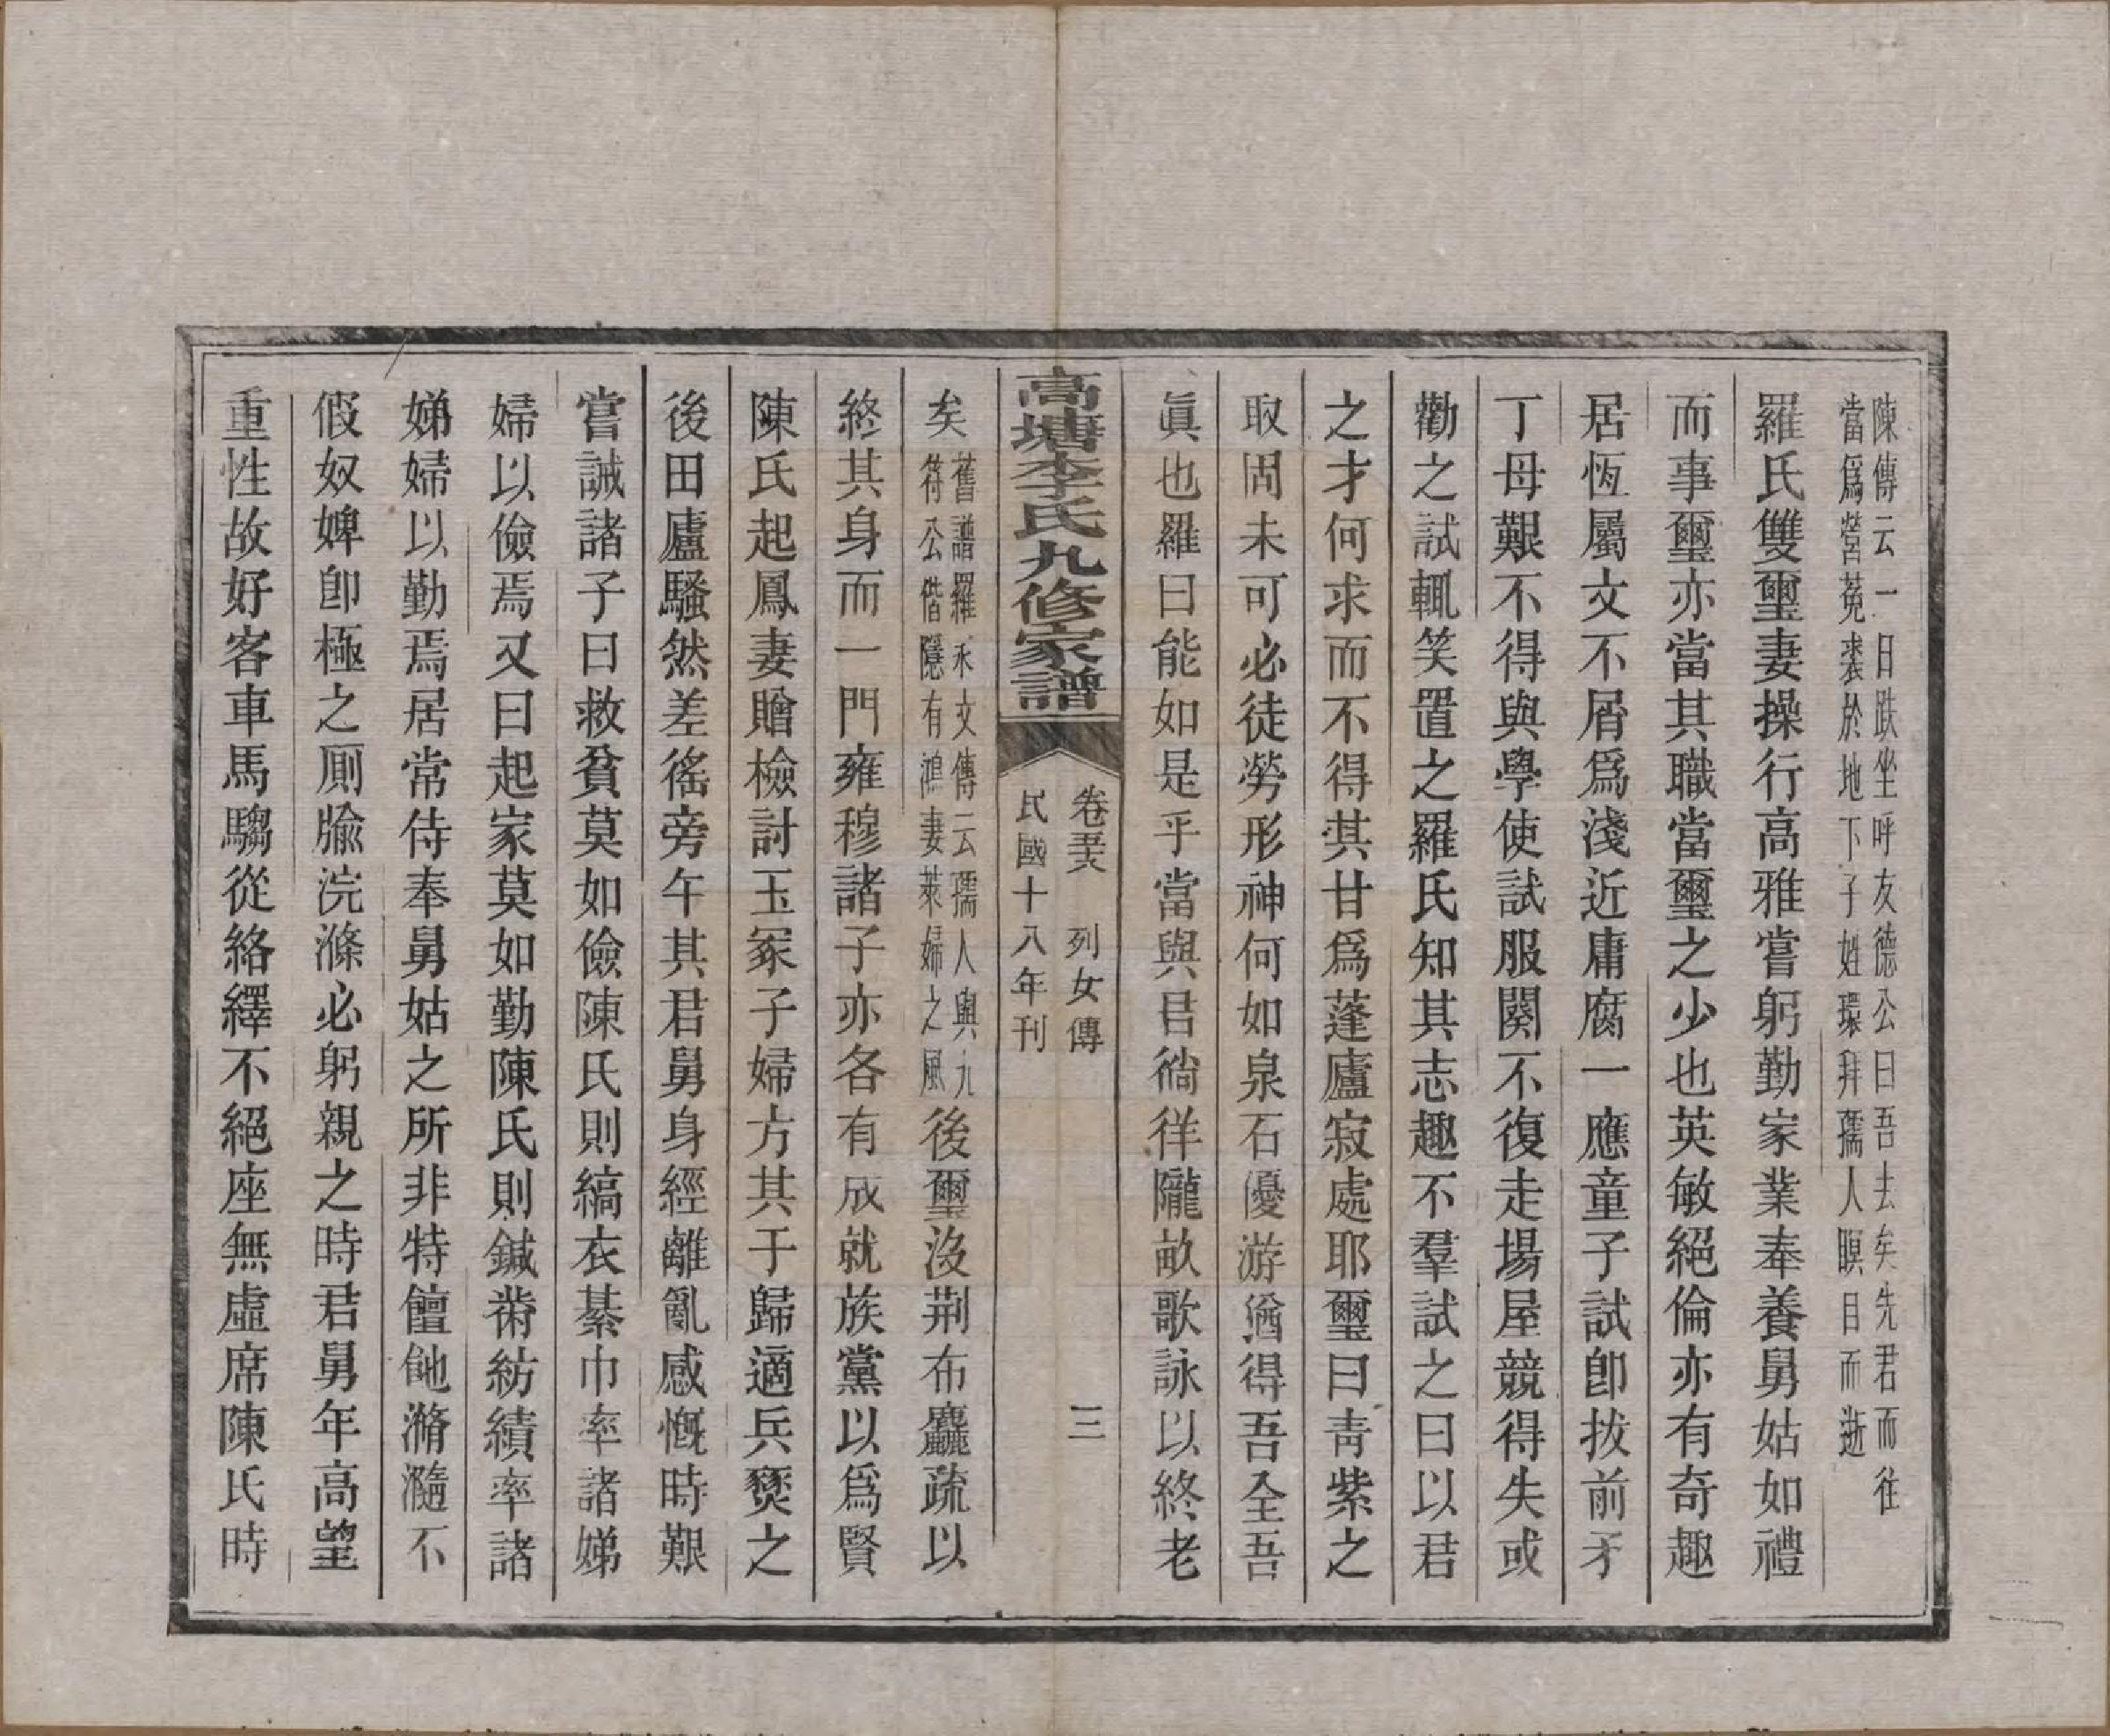 陳傳云一日趺坐呼友德公曰吾去矣先君而往
當爲營菟裘於地下子姓環拜孺人瞑目而逝
羅氏雙璽妻操行高雅嘗躬勤家業奉養舅姑如禮
而事璽亦當其職當璽之少也英敏絕倫亦有奇趣
居恆屬文不屑爲淺近庸腐一應童子試卽拔前矛
丁母艱不得與學使試服闋不復走場屋競得失或
勸之試輒笑置之羅氏知其志趣不羣試之曰以君
之才何求而不得其甘爲蓬廬寂處耶璽曰靑紫之
取固未可必徒勞形神何如泉石優游猶得吾全吾
眞也羅曰能如是乎當與君徜徉隴畝歌詠以終老
高塘李氏九修家譜
卷五 列女傳 三
民國十八年刊
矣
舊譜羅承文傳云孺人與九
符公偕隱有鴻妻萊婦之風
後璽沒荆布麤疏以
終其身而一門雍穆諸子亦各有成就族黨以爲賢
陳氏起鳳妻贈檢討玉冢子婦方其于歸適兵燹之
後田廬騷然差徭旁午其君舅身經離亂感慨時艱
嘗誡諸子曰救貧莫如儉陳氏則縞衣綦巾率諸娣
婦以儉焉又曰起家莫如勤陳氏則鍼黹紡績率諸
娣婦以勤焉居常侍奉舅姑之所非特饘酏滫瀡不
假奴婢卽極之厠牏浣滌必躬親之時君舅年高望
重性故好客車馬騶從絡繹不絕座無虛席陳氏時